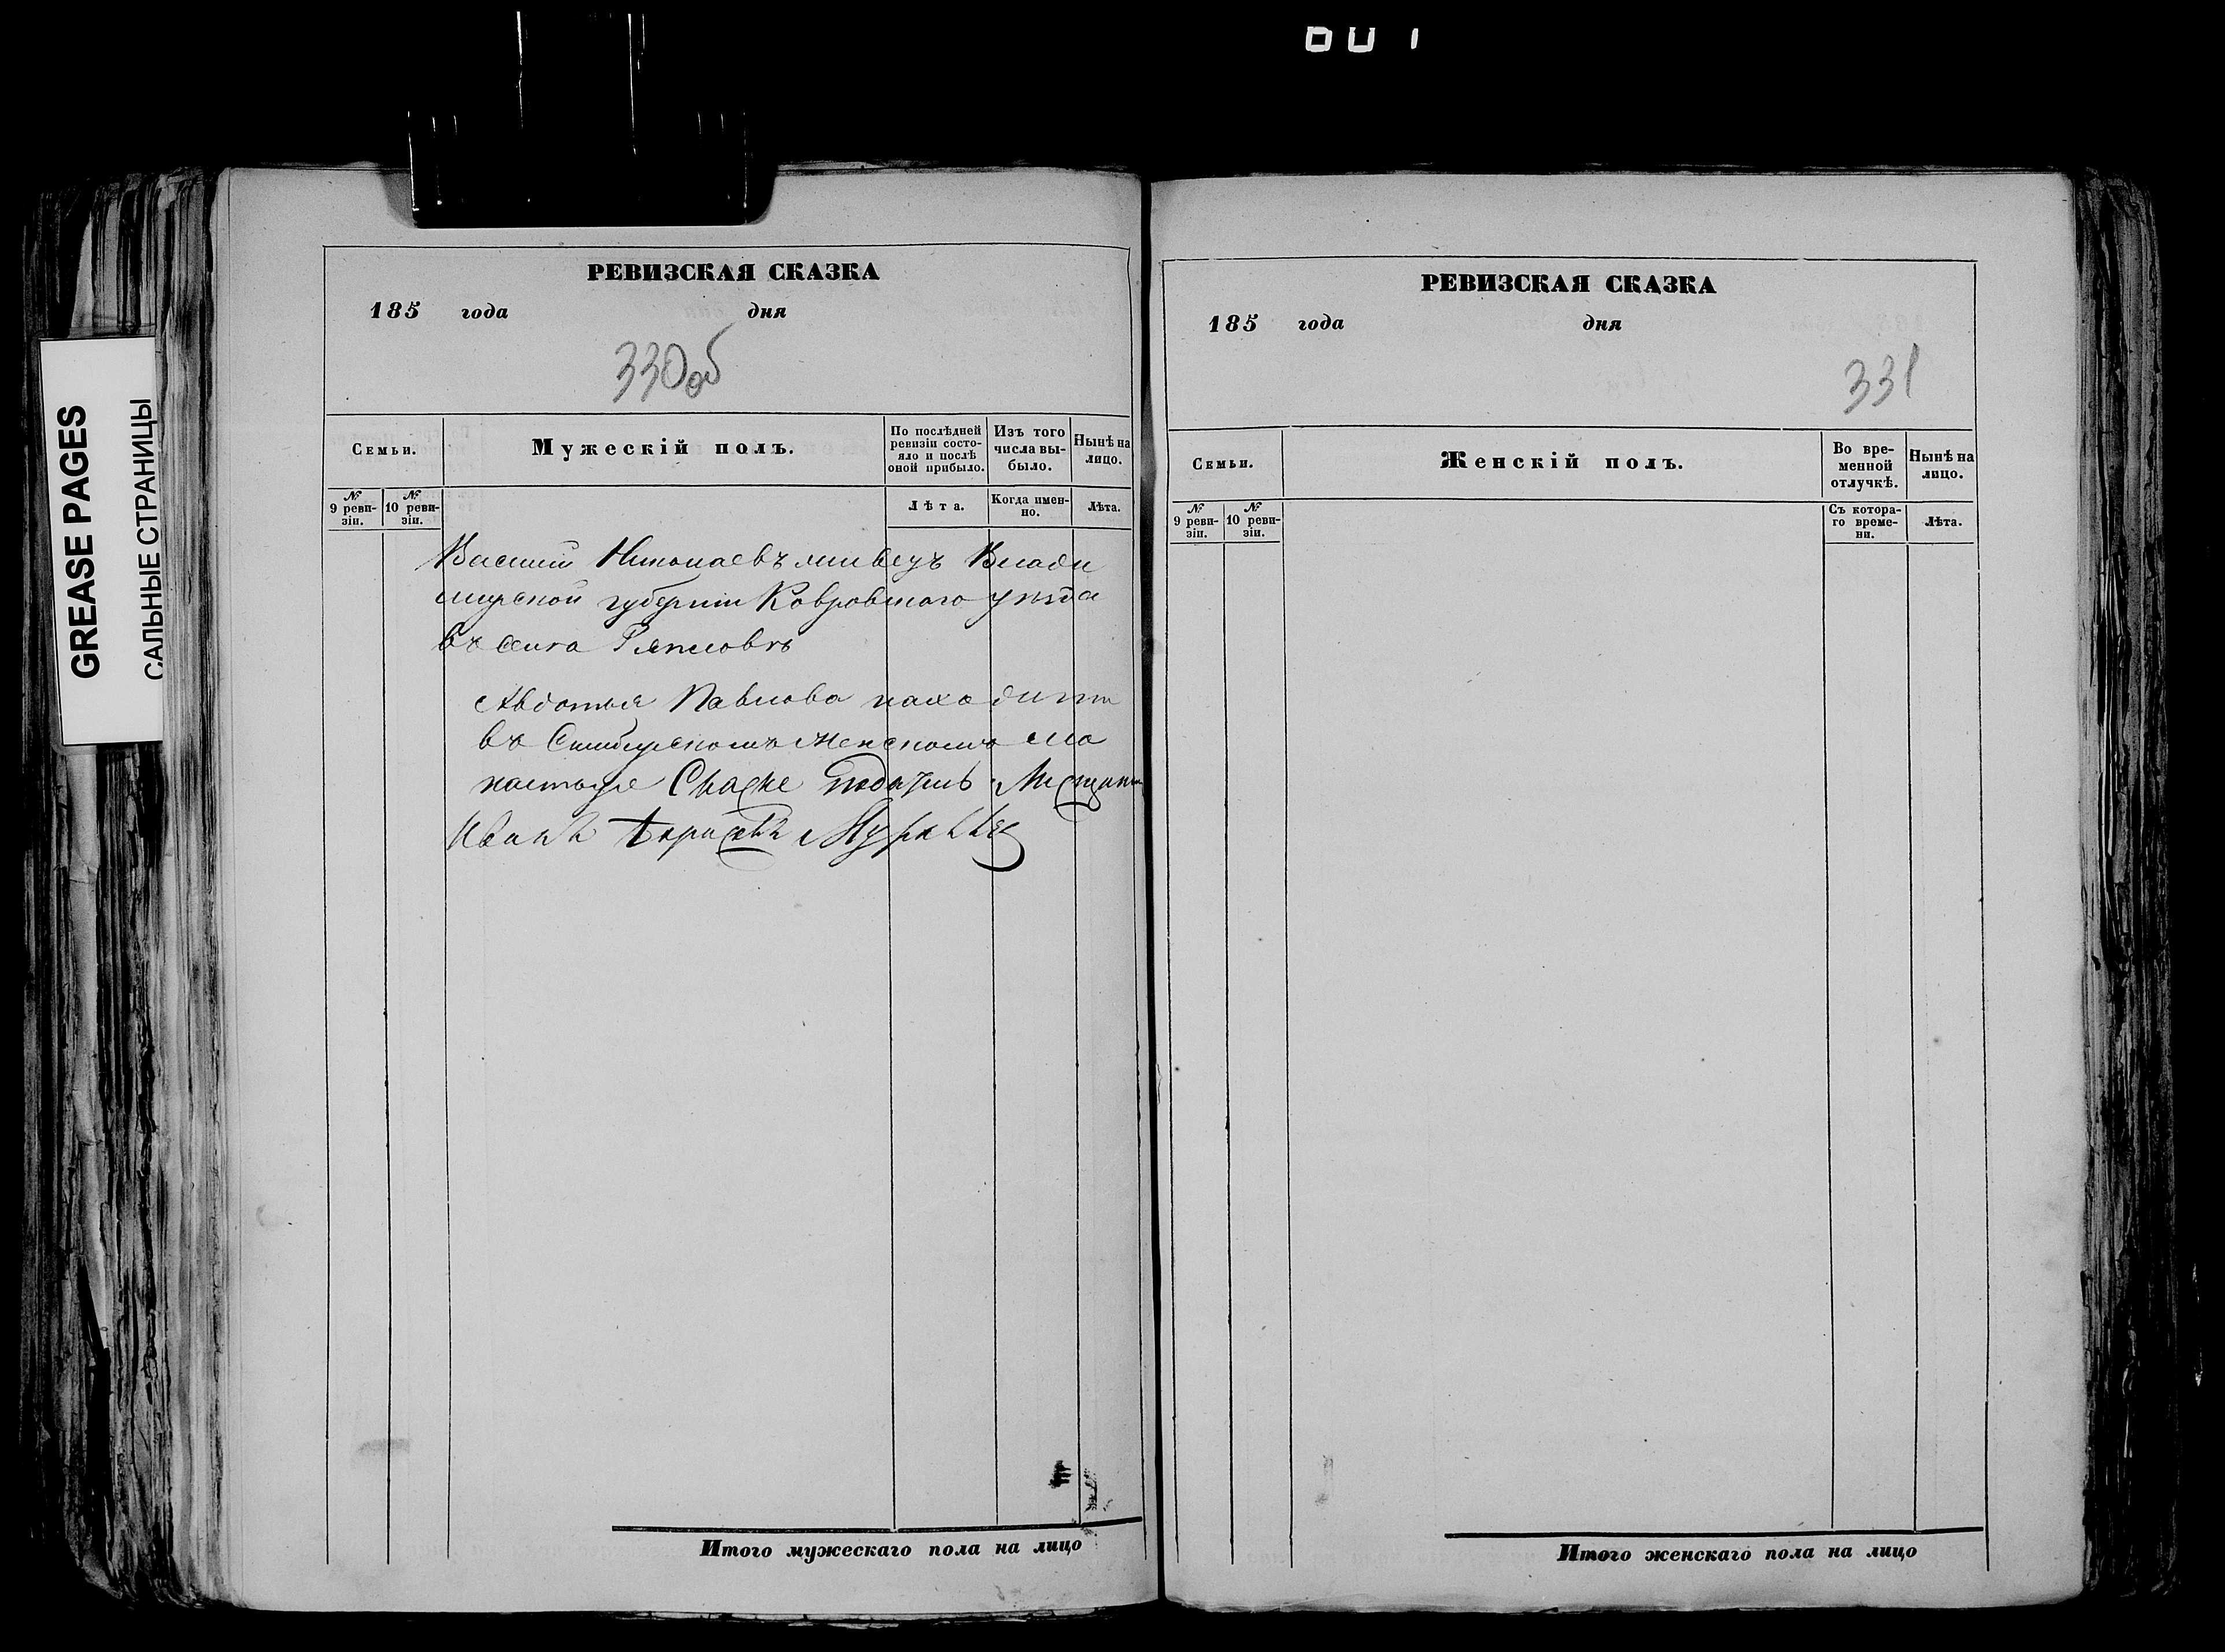 GREASE PAGES
САЛЬНЫЕ СТРАНИЦЫ
РЕВИЗСКАЯ СКАЗКА
185 года дня
330об
Семьи.
Мужескій полъ.
По послѣдней ревизіи состояло и послѣ оной прибыло.
Изъ того числа выбыло.
Нынѣ на лицо.
№ 9 ревизіи.
№ 10 ревизіи.
Лѣта.
Когда именно.
Лѣта.
Василий Николаевъ живетъ Влади
мирской губернии Ковровского уѣзда
въ селѣ
Авдотья Павлова находитца
въ Симбирскомъ женскомъ мо
настыре Скаске податель Мещанинъ
Иванъ
Итого мужескаго пола на лицо
РЕВИЗСКАЯ СКАЗКА
185 года дня
331
Семьи.
Женскій полъ.
Во временной отлучкѣ.
Нынѣ на лицо.
№ 9 ревизіи.
№ 10 ревизіи.
Съ котораго времени.
Лѣта.
Итого женскаго пола на лицо